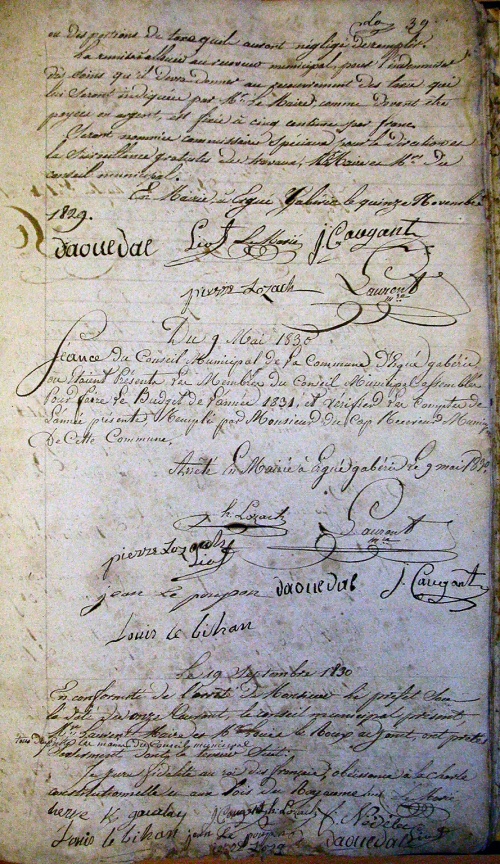 39
ou des portions de taxe qu'ils auront négligé de remplir.
La remise allouée au receveur municipal, pour l'indemniser
des soins qu'il devra donner au recouvrement des taxe qui
lui seront indiquées par Mr. Le Maire comme devant être
payées en argent, est fixée à cinq centimes par franc.
Seront nommés commissaires spéciaux pour la direction et
la surveillance des travaux, Mr. Maire et Mrs. du
conseil municipal.
En Mairie à Ergué Gabéric le quinze Novembre
1829.
daouedal Liot Le Marié J. Caugant
pierre Lozach Laurent
mre
Du 9 Mai 1830
Séance du Conseil Municipal de la Commune d'Ergué gabéric
ou étaint Présents les Membres du Conseil Municipal assemblés
Pour faire le Budget de l'année 1831, et vérifier les Comptes de
L'année présente par Monsieur du Cap Receveur
De Cette Commune.
Arrêté En Mairie à Ergué gabéric le 9 mai
h. Lozach Laurent
mre
pierre Lozach
Liot
jean Le poupon daouedal J. Caugant
Louis le bihan
Le 19 Septembre 1830
En conformité de l'arrêté de Monsieur le préfet sous
la date du onze Courant, le conseil municipal présent,
Mr. Laurent Maire et Mr. le Roux adjoint, ont prêté
du conseil municipal
Serment dont la teneur suit:
Je jure fidélité au roi des français, obéissance à la charte
constitutionnelle et aux lois du Royaume
Le Marié
herve J Caugant h. Lozach Nédélec
Louis le bihan jean Le poupon daouedal Liot